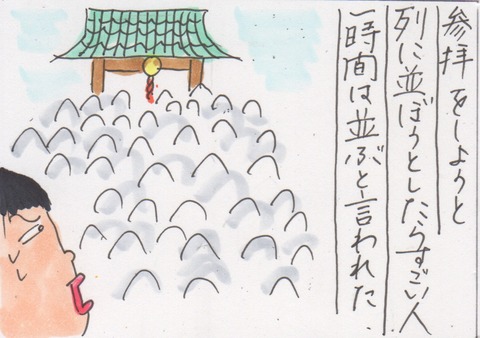 参拝をしようと
列に並ぼうとしたらすごい人
一時間は並ぶと言われた